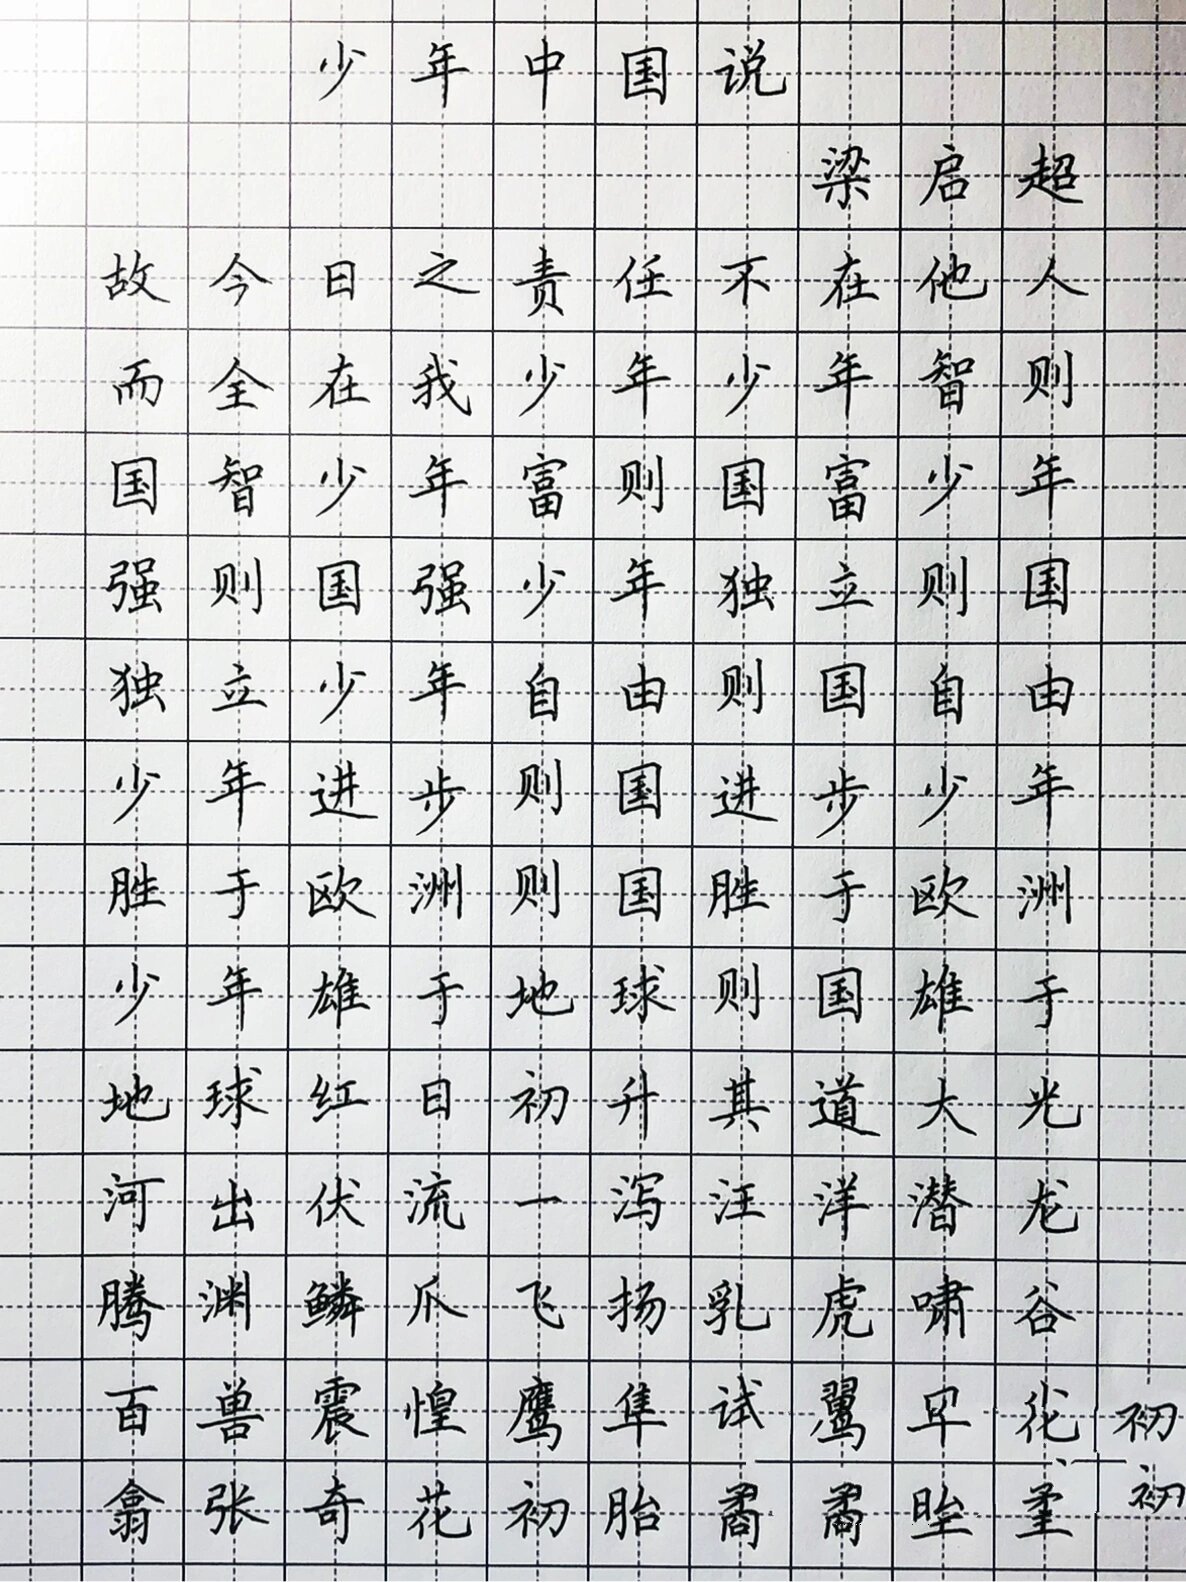 少年中国说
梁启超
故今日之责任不在他人
而全在我少年少年智则
国智少年富则国富少年
强则国强少年独立则国
独立少年自由则国自由
少年进步则国进步少年
胜于欧洲则国胜于欧洲
少年雄于地球则国雄于
地球红日初升其道大光
河出伏流一泻汪洋潜龙
腾渊鳞爪飞扬乳虎啸谷
百兽震惶鹰隼试翼初
翕张奇花初胎矞矞初